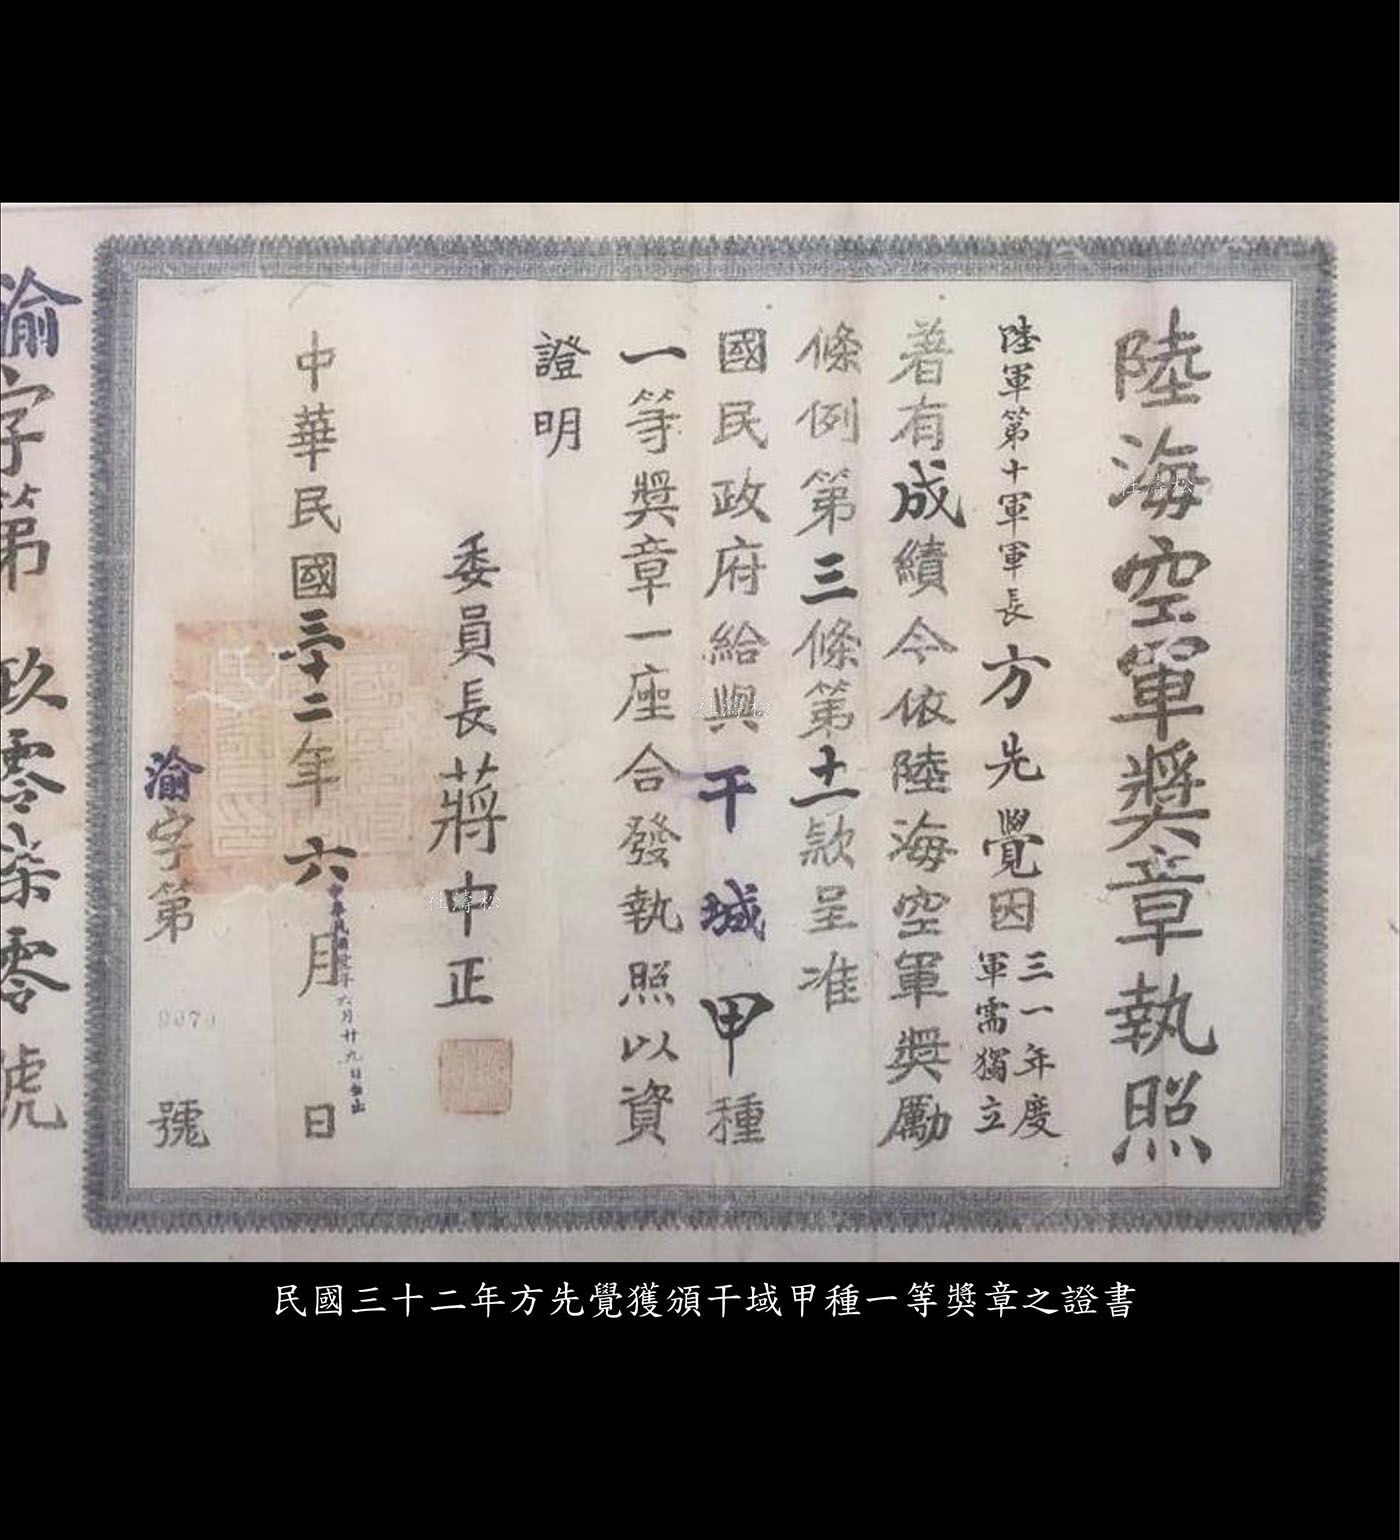 陸海空軍獎章執照
陸軍第十軍軍長方先覺因三一年度
軍需獨立
著有成績今依陸海空軍獎勵
條例第三條第十一款呈准
國民政府給與干城甲種
一等獎章一座合發執照以資
證明
委員長蔣中正
中華民國三十二年六月日
渝字第9070號
渝字第玖零柒零號
杜濤松
杜濤松
杜濤松
民國三十二年方先覺獲頒干域甲種一等獎章之證書